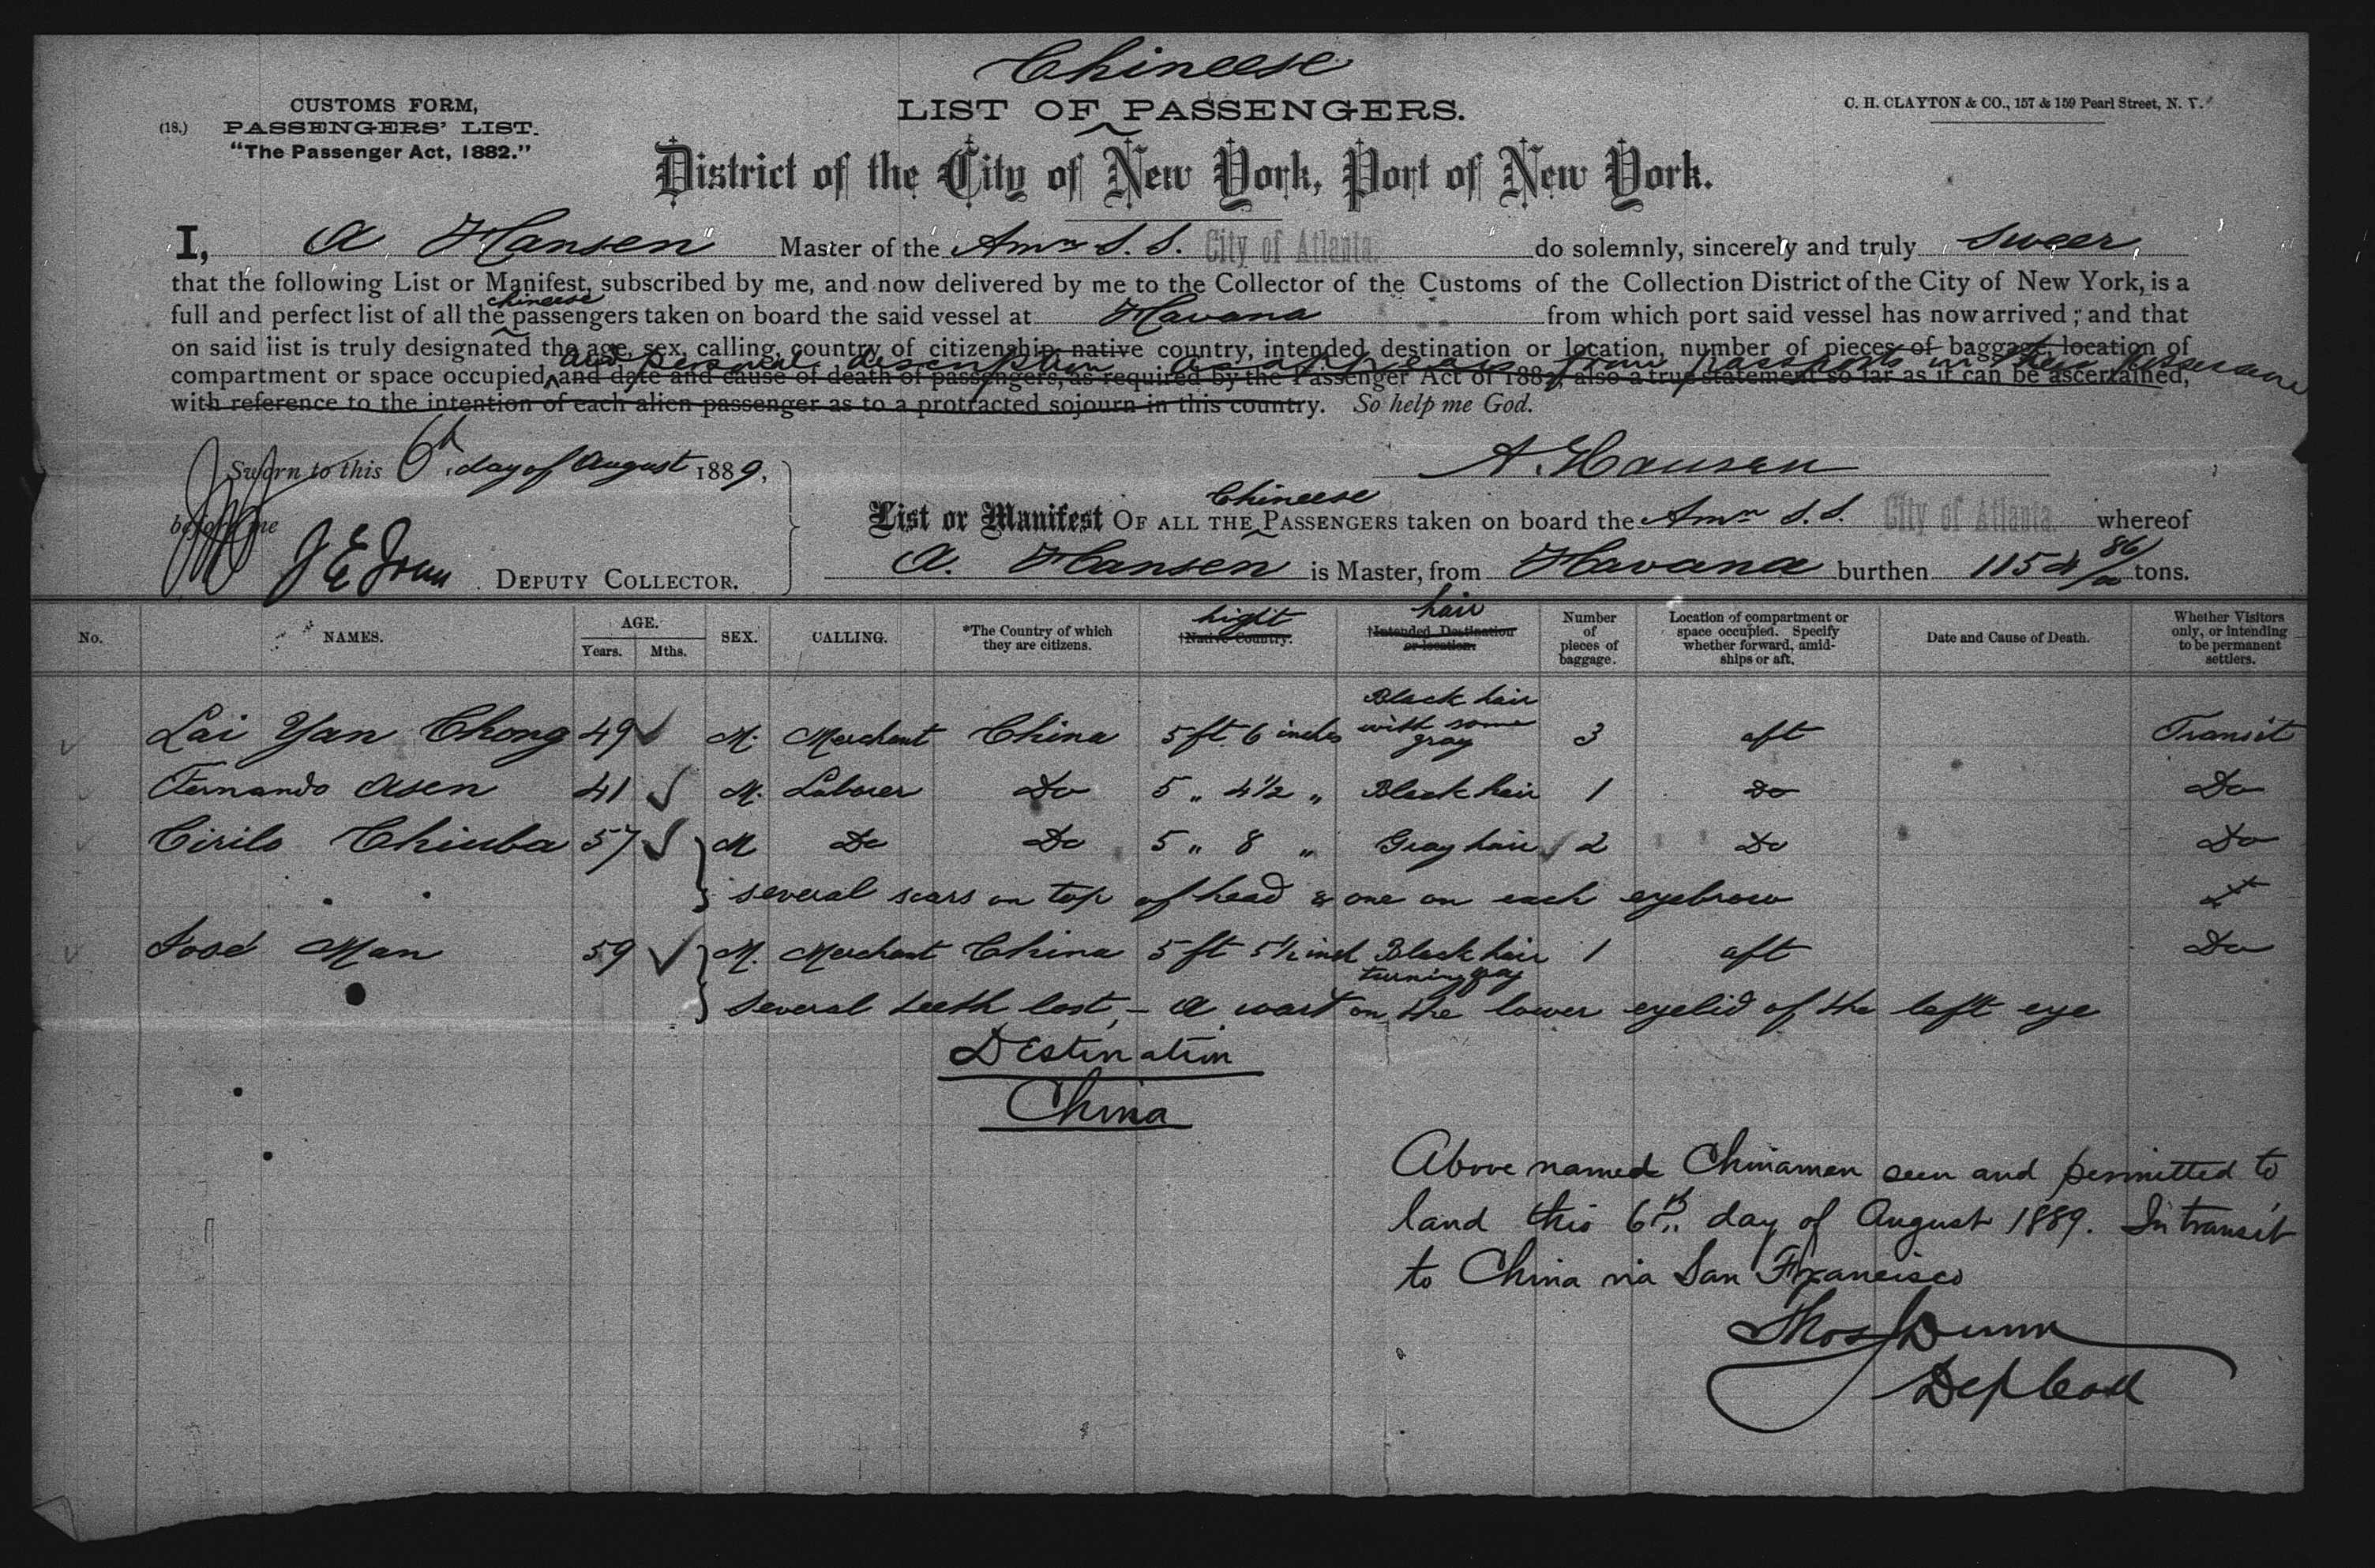 Chineese
CUSTOMS FORM,
(18.) PASSENGERS' LIST.
"The Passenger Act, 1882."
LIST OF PASSENGERS.
C. H. CLAYTON & CO., 157 & 159 Pearl Street, N. Y.
District of the City of New York, Port of New York.
I, A Hansen Master of the Amn S. S. City of Atlanta. do solemnly, sincerely and truly swear
that the following List or Manifest, subscribed by me, and now delivered by me to the Collector of the Customs of the Collection District of the City of New York, is a
chineese
full and perfect list of all the passengers taken on board the said vessel at Havana from which port said vessel has now arrived; and that
on said list is truly designated the age, sex, calling, country of citizenship, native country, intended destination or location, number of pieces of baggage, location of
and personal description as appears from passports in their possession
compartment or space occupied, and date and cause of death of passengers, as required by the Passenger Act of 1882, also a true statement so far as it can be ascertained,
with reference to the intention of each alien passenger as to a protracted sojourn in this country. So help me God.
Sworn to this 6th day of August 1889,
A. Hansen
before me
J E
DEPUTY COLLECTOR.
Chineese
List or Manifest OF ALL THE PASSENGERS taken on board the Amn S. S. City of Atlanta. whereof
A. Hansen is Master, from Havana burthen 1154 86/00 tons.
No. NAMES. AGE. Years. Mths. SEX. CALLING. *The Country of which they are citizens. hight †Native Country. hair †Intended Destination or location. Number of pieces of baggage. Location of compartment or space occupied. Specify whether forward, amidships or aft. Date and Cause of Death. Whether Visitors only, or intending to be permanent settlers.
Lai Yan Chong 49 M. Merchant China 5 ft 6 inches Black hair with some gray 3 aft Transit
Fernando Asen 41 M. Laborer Do 5 " 4½ " Black hair 1 Do Do
Cirilo Chiuba 57 M Do Do 5 " 8 " Gray hair 2 Do Do
several scars on top of head & one on each eyebrow
José Man 59 M. Merchant China 5 ft 5½ inch Black hair turning gray 1 aft Do
several teeth lost, - a wart on the lower eyelid of the left eye
Destination
China
Above named Chinamen seen and permitted to
land this 6th day of August 1889. In transit
to China via San Francisco
Thos Dunn
Dep Coll